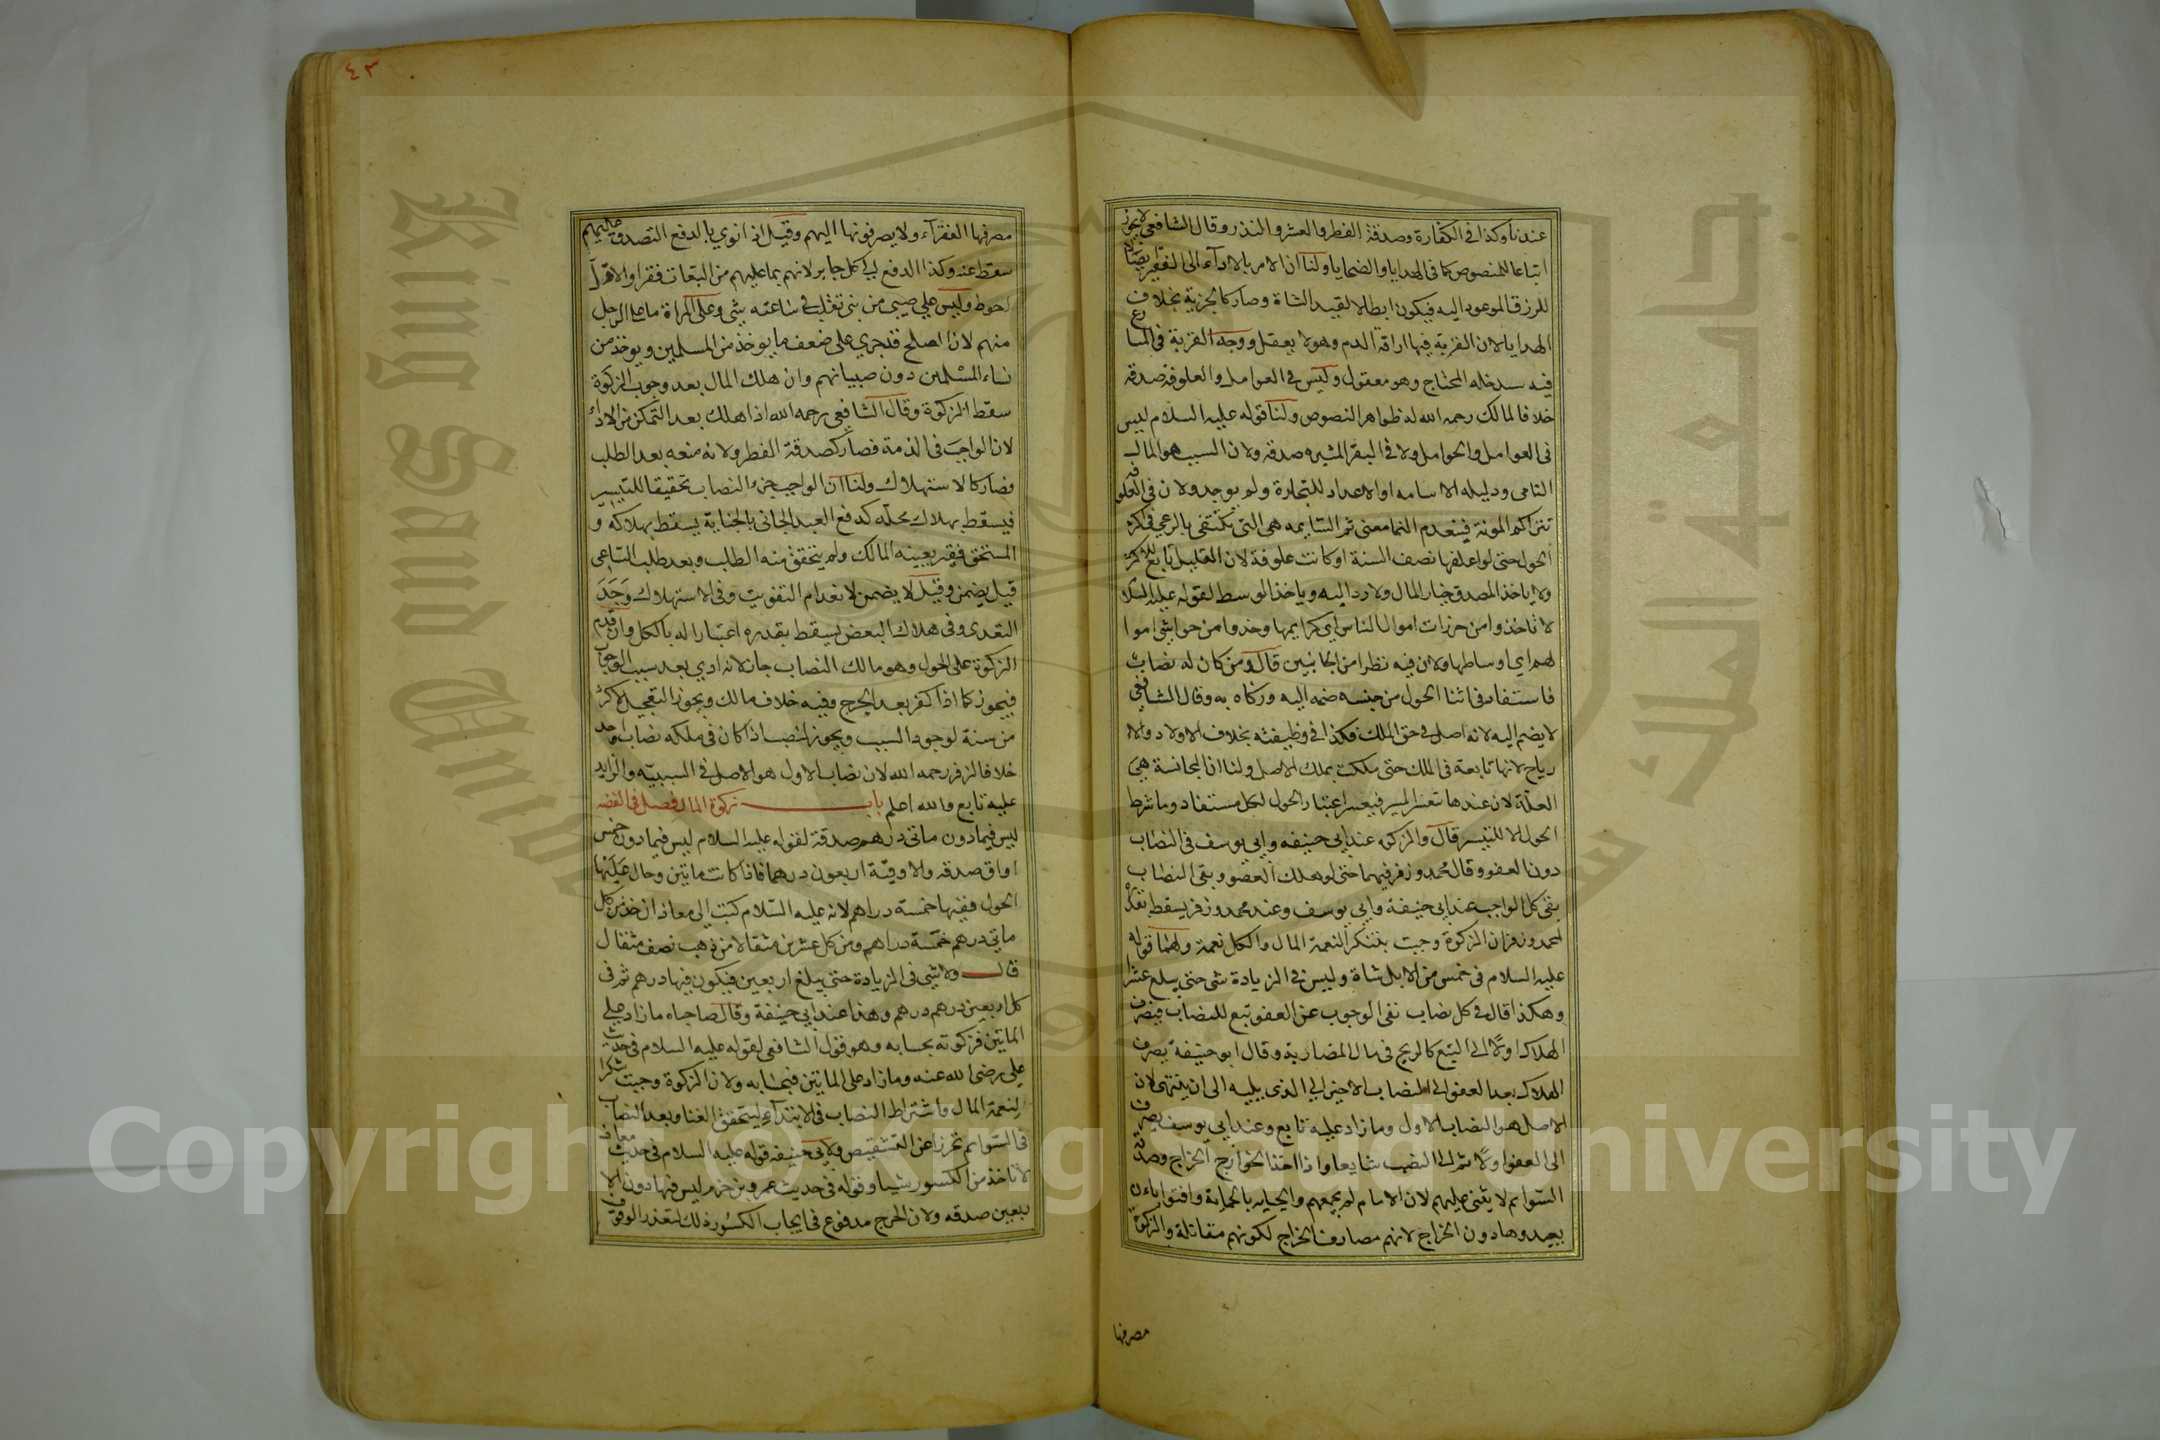 عندنا وكذا في الكفارة وصدقة الفطر والعشر والنذر وقال الشافعي لا يجوز
اتباعا للمنصوص كما في الهدايا والضحايا ولنا ان الامر بالاداء الى الفقير ايصال
للرزق الموعود اليه فيكون ابطالا لقيد الشاة وصار كالجزية بخلاف
الهدايا لان القربة فيها اراقة الدم وهو لا يعقل ووجه القربة في المتنازع
فيه سد خلة المحتاج وهو معقول وليس في العوامل والعلوفة صدقة
خلافا لمالك رحمه الله له ظواهر النصوص ولنا قوله عليه السلام ليس
في العوامل والحوامل ولا في البقر المثيره صدقة ولان السبب هو المال
النامي ودليله الاسامه او الاعداد للتجارة ولم يوجد ولان في العلوفه
تتراكم المونة فينعدم النما معنى ثم السايمه هي التي تكتفي بالرعي في اكثر
الحول حتى لو اعلفها نصف السنة او كانت علوفة لان القليل تابع للاكثر
ولا ياخذ المصدق خيار المال ولا رداليه وياخذ الوسط لقوله عليه السلام
لا تاخذوا من حزرات اموال الناس اي كرايمها وخذوا من حواشي اموا
لهم اي اوساطها ولان فيه نظرا من الجانبين قال ومن كان له نصاب
فاستفاد في اثنا الحول من جنسه ضمه اليه وزكاه به وقال الشافعي
لا يضم اليه لانه اصل في حق الملك فكذا في وظيفته بخلاف الاولاد والا
رباح لانها تابعة في الملك حتى ملكت بملك الاصل ولنا ان المجانسة هي
العلة لان عندها تعسر الميز فيعسر اعتبار الحول لكل مستفاد وما شرط
الحول الا للتيسر قال والزكوه عند ابي حنيفه وابي يوسف في النصاب
دون العفو وقال محمد وزفر فيهما حتى لو هلك العفو وبقي النصاب
بقي كل الواجب عند ابي حنيفة وابي يوسف وعند محمد وزفر يسقط بقدره
لمحمد وزفر ان الزكوة وجبت شكر النعمة المال والكل نعمة ولهما قوله
عليه السلام في خمس من الابل شاة وليس في الزيادة شي حتى يبلغ عشرا
وهكذا قال في كل نصاب نفى الوجوب عن العفو تبع للنصاب فيصرف
الهلاك اولا الى التبع كالربح في مال المضاربة وقال ابو حنيفة يصرف
الهلاك بعد العفو الى النصاب الاخير الى الذي يليه الى ان ينتهي لان
الاصل هو النصاب الاول وما زاد عليه تابع وعند ابي يوسف يصرف
الى العفو اولا ثم الى النصب شايعا واذا اخذ الخوارج الخراج وصدقة
السوايم لا يثنى عليهم لان الامام لم يحمهم والجبايه بالحماية وافتوا بان
يعيدوها دون الخراج لانهم مصارف الخراج لكونهم مقاتلة والزكوة
مصرفها
٤٣
مصرفها الفقراء ولا يصرفونها اليهم وقيل اذا نوى بالدفع التصدق عليهم
سقط عنه وكذا الدفع الى كل جابر لانهم بما عليهم من التبعات فقرا والاول
احوط وليس على صبي من بني تغلب في ساعته شي وعلى المراة ما على الرجل
منهم لان الصلح قد جرى على ضعف ما يوخذ من المسلمين ويوخذ من
نساء المسلمين دون صبيانهم وان هلك المال بعد وجوب الزكوة
سقط الزكوة وقال الشافعي رحمه الله اذا هلك بعد التمكن من الاداء
لان الواجب في الذمة فصار كصدقة الفطر ولانه منعه بعد الطلب
فصار كالاستهلاك ولنا ان الواجب جزء النصاب تحقيقا للتيسير
فيسقط بهلاك محله كدفع العبد الجاني بالجناية يسقط بهلاكه و
المستحق فقير يعينه المالك ولم يتحقق منه الطلب وبعد طلب الساعي
قيل يضمن وقيل لا يضمن لانعدام التفويت وفي الاستهلاك وجد
التعدي وفي هلاك البعض يسقط بقدره اعتبارا له بالكل وان قدم
الزكوة على الحول وهو مالك النصاب جاز لانه ادى بعد سبب الوجوب
فيجوز كما اذا كفر بعد الجرح وفيه خلاف مالك ويجوز التعجيل لاكثر
من سنة لوجود السبب ويجوز لنصب اذا كان في ملكه نصاب واحد
خلافا لزفر رحمه الله لان نصاب الاول هو الاصل في السببية والزايد
عليه تابع والله اعلم باب زكوة المال فصل في الفضه
ليس فيما دون ماتي درهم صدقة لقوله عليه السلام ليس فيما دون خمس
اواق صدقه والاوقية اربعون درهما فاذا كانت ماتين وحال عليها
الحول ففيها خمسة دراهم لانه عليه السلام كتب الى معاذ ان خذ من كل
ماتي درهم خمسة دراهم ومن كل عشرين مثقالا من ذهب نصف مثقال
قال ولا شي في الزيادة حتى يبلغ اربعين فيكون فيها درهم ثم في
كل اربعين درهم درهم وهذا عند ابي حنيفة وقال صاحباه ما زاد على
الماتين فزكوته بحسابه وهو قول الشافعي لقوله عليه السلام في حديث
علي رضي الله عنه وما زاد على الماتين فبحسابه ولان الزكوة وجبت شكرا
لنعمة المال واشتراط النصاب في الابتداء ليتحقق الغنا وبعد النصاب
في السوايم تحرزا عن التشقيص ولابي حنيفه قوله عليه السلام في حديث معاذ
لا تاخذ من الكسور شيا وقوله في حديث عمرو بن حزم ليس فيها دون الا
ربعين صدقه ولان الحرج مدفوع في ايجاب الكسور ذلك لتعذر الوقوف
King Saud University
جامعة الملك سعود
Copyright © King Saud University